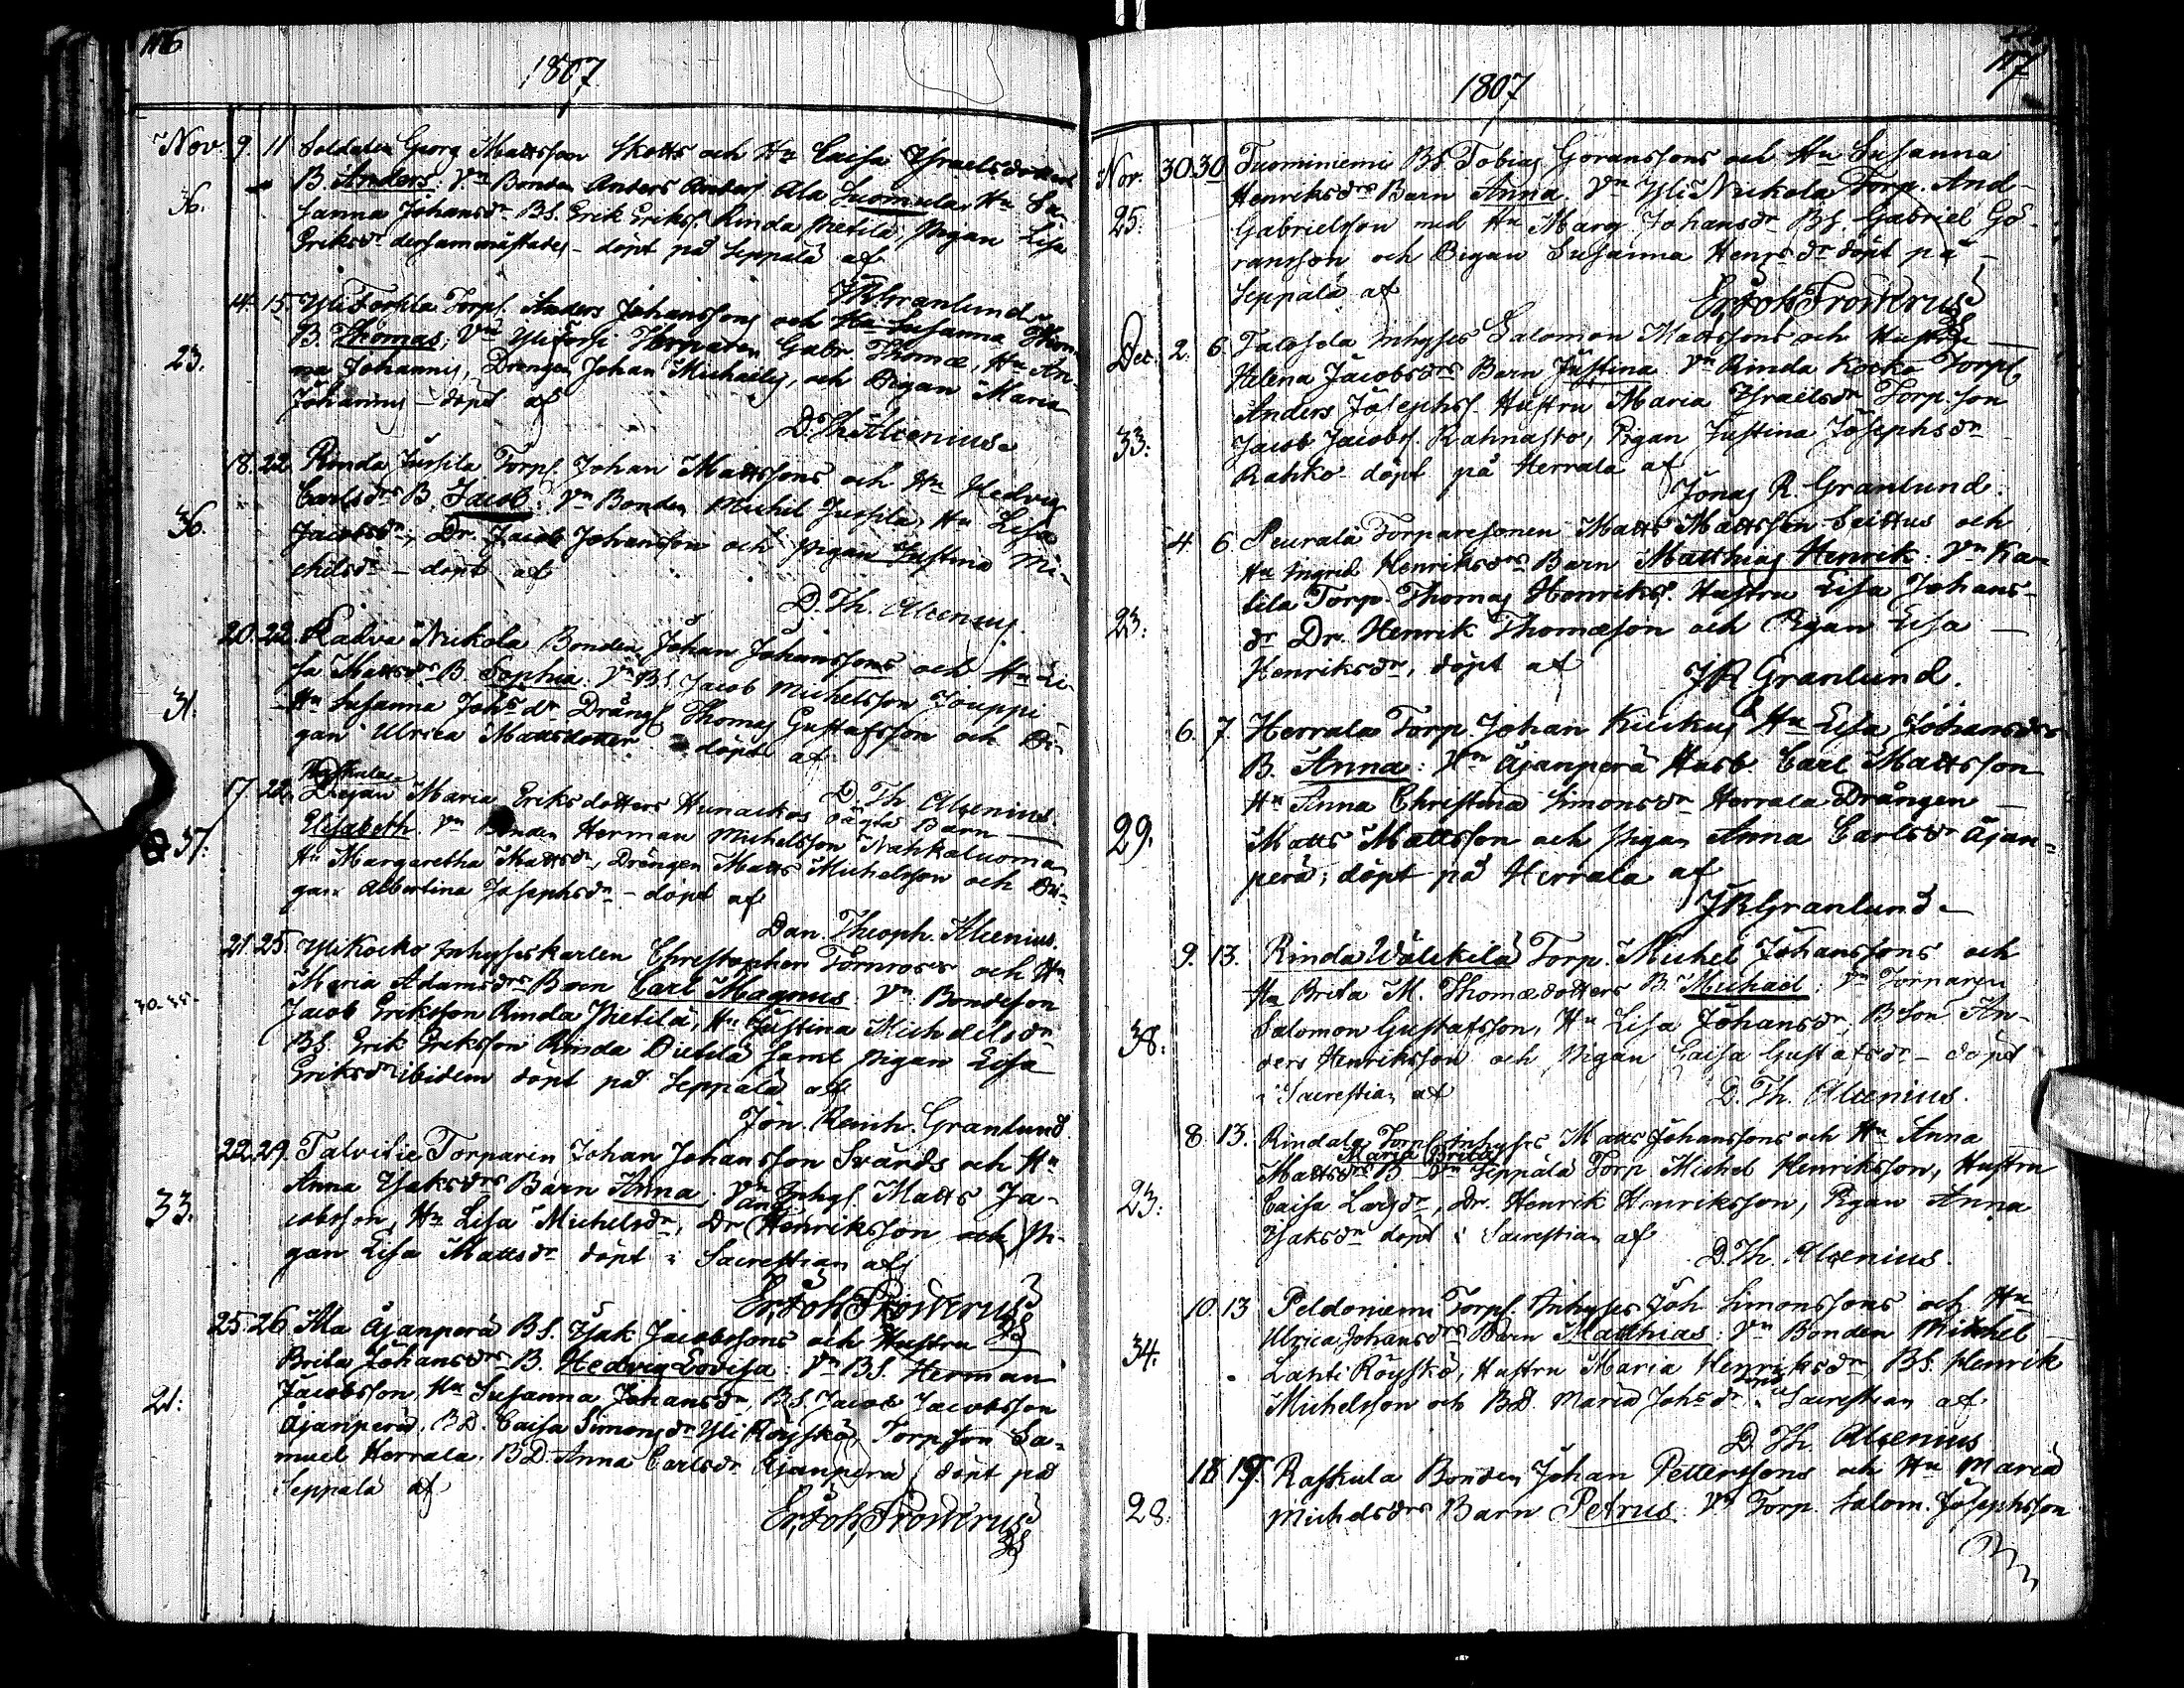 116
1807
Nov. 9. 11 Soldaten Georg Mattsson Skotts och Hu Caisa Ysraelsdotters
36. B. Anders: Vn Bonden Anders Anders. Ala Luomula, Hu Su-
sanna Johansdr BS. Erik Erikss. Rinda Pietilä, Pigan Lisa
Eriksdr dersammastädes - döpt på Seppälä af
JR. Granlund
14. 15. Yli Torp. Anders Johanssons och Hu Susanna Thom.
B. Thomas; Vn Gabr. Thomæ, Hu An-
23. na Johannis, Drengen Johan Michaelis, och Pigan Maria
Johannis - döpt af
D. Th. Alcenius
18. 22. Rinda Jussila Torp. Johan Mattssons och Hu Hedvig
Carlsdrs B. Jacob: Vn Bonden Michel Jussila, Hu Lisa
36. Jacobsdr, Dr. Jacob Johansson och Pigan Justina Mi-
chelsdr - döpt af
D. Th. Alcenius
20. 22. Kalva Nickola Bonden Johan Johanssons och Hu Li-
sa Mattsdrs B. Sophia. Vn BS. Jacob Michelsson Jouppi
31. Hu Susanna Johs dr Drängs Thomas Gustafsson och Pi-
gan Ulrica Mattsdotter - döpt af
D. Th. Alcenius
17. 22. Pigan Maria Eriksdotters Hunackos oägta Barn
37. Elisabeth. Vn Bonden Herman Michelsson Nahkaluoma
Hu Margaretha Mattsdr, Drängen Matts Michelsson och Pi-
gan Albertina Josephsdr - döpt af
Dan. Theoph. Alcenius.
21. 25. Yli Kocko Inhyseskarlen Christopher Törnroos och Hu
Maria Adamsdrs Barn Carl Magnus Vn Bondeson
30. Jacob Eriksson Rinda Pietilä, Hu Justina Michaelsdr
BS. Erik Eriksson Rinda Pietilä samt Pigan Lisa
Eriksdr ibidem döpt på Seppälä af
Jon. Reinh. Granlund
22. 29. Talvitie Torparen Johan Johansson Svärds och Hu
Anna Ysaksdrs Barn Anna: Vn Inhys. Matts Ja-
33. cobsson, Hu Lisa Michelsdr, Dr And Henriksson och Pi-
gan Lisa Mattsdr döpt i Sacrestian af
Er. Joh. Frosterus
25. 26 Ala Äjanperä BS. Ysak Jacobssons och Hustru
Brita Johansdrs B. Hedvig Lovisa: Vn BS. Herman
21: Jacobsson Hu Susanna Johansdr, BS. Jacob Jacobsson
Äjanperä, BD. Caisa Simonsdr Yli Röyskö, Torp son Sa-
muel Herrala. BD. Anna Carlsdr Äjanperä, döpt på
Seppälä af
Er. Joh. Frosterus
117
1807
Nov. 30. 30. Tuominiemi BS. Tobias Göranssons och Hu Susanna
Henriksdrs Barn Anna. Vn Yli Nickola Torp. And-
25: Gabrielsson med Hu Marg Johansdr BS. Gabriel Gö-
ransson och Pigan Susanna Henrs dr döpt på
Seppälä af
Er. Joh. Frosterus
Dec. 2. 6. Inhyses Salomon Mattssons och Hustru
Helena Jacobsdrs Barn Justina Vn Rinda Kocko Torp.
Anders Josephs. Hustru Maria Ysraelsdr Torp. son
33: Jacob Jacobs. Rahnasto, Pigan Justina Josephsdr
Rahko döpt på Herrala af
Jonas R. Granlund.
4. 6 Peurala Torparesonen Matts Mattsson Seittus och
Hu Ingrid Henriksdrs Barn Matthias Henrik: Vn Ka-
tila Torp. Thomas Henriks. Hustru Lisa Johans-
23: dr Dr. Henrik Thomæson och Pigan Lisa
Henriksdr, döpt af
JR Granlund.
6. 7. Herrala Torp. Johan Kuckus Hu Lisa Johansdrs
B. Anna: Vn Äjanperä Husb. Carl Mattsson
Hu Anna Christina Simonsdr Herrala Drängen
29. Matts Mattsson och Pigan Anna Carlsdr Äjan-
perä; döpt på Herrala af
JR Granlund
9. 13. Rinda Wälikilä Torp. Michel Johanssons och
Hu Brita M. Thomædotters B. Michael: Vn Torparen
38: Salomon Gustafsson, Hu Lisa Johansdr, B. Son An-
ders Henriksson och Pigan Caisa Gustafsdr - döpt
i Sacrestian af
D. Th. Alcenius.
8. 13. Rindala Torp. Inhyses Matts Johanssons och Hu Anna
Maria Brita
Mattsdrs B. Vn Seppälä Torp Michel Henriksson, Hustru
23: Caisa Larsdr, Dr. Henrik Henriksson, Pigan Anna
Ysaksdr döpt i Sacrestian af
D. Th. Alcenius.
10. 13 Peldoniemi Torp. Inhyses Joh Simonssons och Hu
Ulrica Johansdrs Barn Matthias: Vn Bonden Michel
34. Lahti Röyskö, Hustru Maria Henriksdr, BS. Henrik
Michelsson och BD. Maria Johsdr i Sacrestian af
D. Th. Alcenius
18. 19. Raskula Bonden Johan Petterssons och Hu Maria
28. Michelsdrs Barn Petrus: Vn Torp. Salom. Josephsson